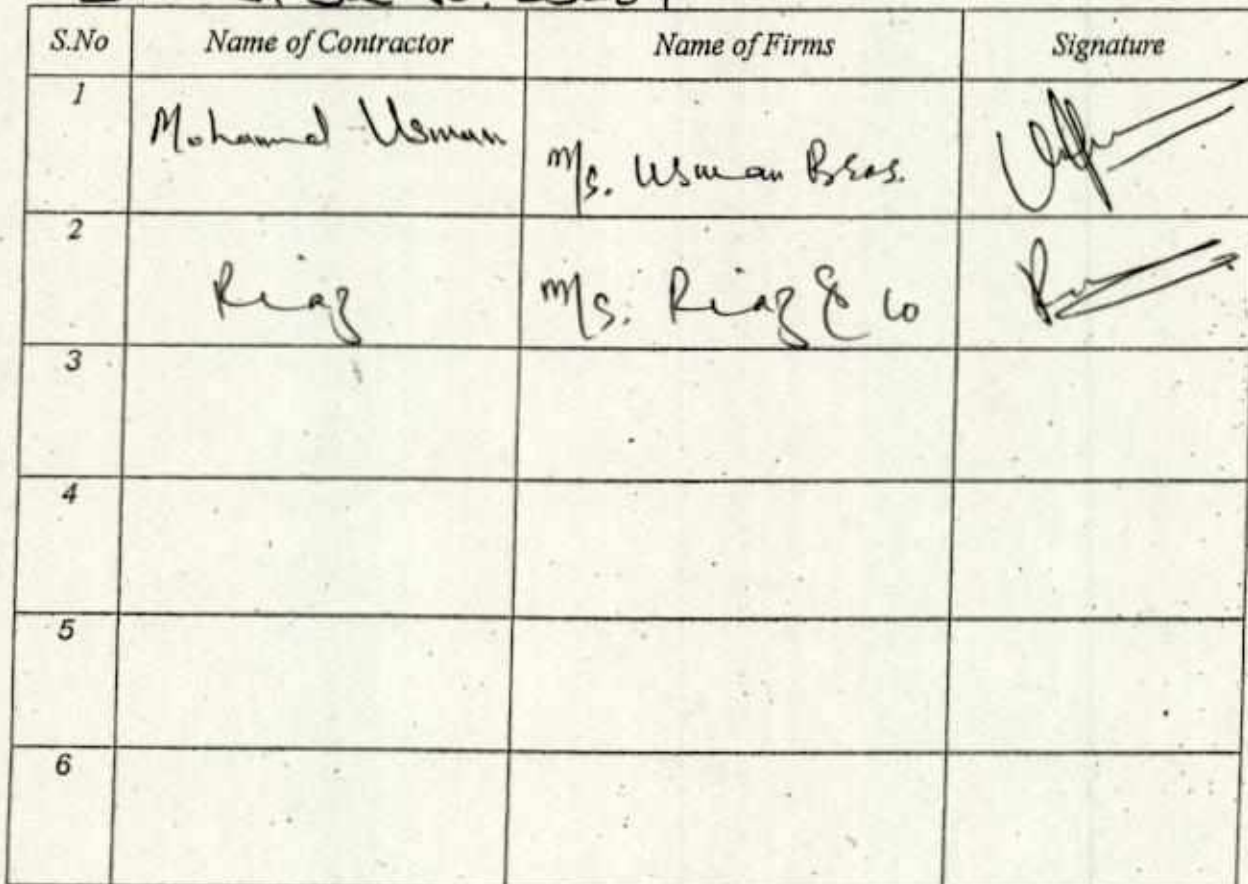 S.No Name of Contractor Name of Firms Signature
1 Mohammad Usman M/s. Usman Bros.
2 Riaz M/s. Riaz & Co
3
4
5
6